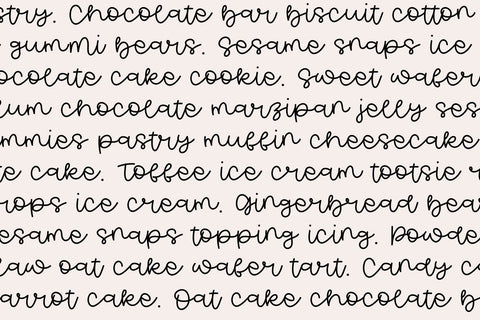 stry. Chocolate bar biscuit cotton
gummi bears. Sesame snaps ice
ocolate cake cookie. Sweet wafer
lum chocolate marzipan jelly ses
mmies pastry muffin cheesecake
te cake. Toffee ice cream tootsie r
rops ice cream. Gingerbread bea
esame snaps topping icing. Powde
law oat cake wafer tart. Candy c
arrot cake. Oat cake chocolate b